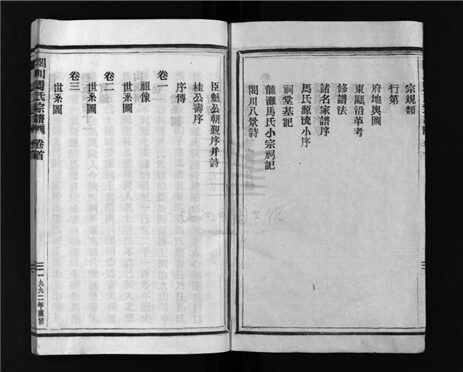 宗規類
行第
府地輿圖
東甌沿革考
修譜法
諸名家譜序
馬氏源流小序
祠堂基記
龍灘馬氏小宗祠記
閣川八景詩
臣魁公朝覲序并詩
桂公壽序
序傳
卷一
祖像
世系圖
卷二
世系圖
卷三
世系圖
川馬氏宗譜 卷首
一九九二年重修